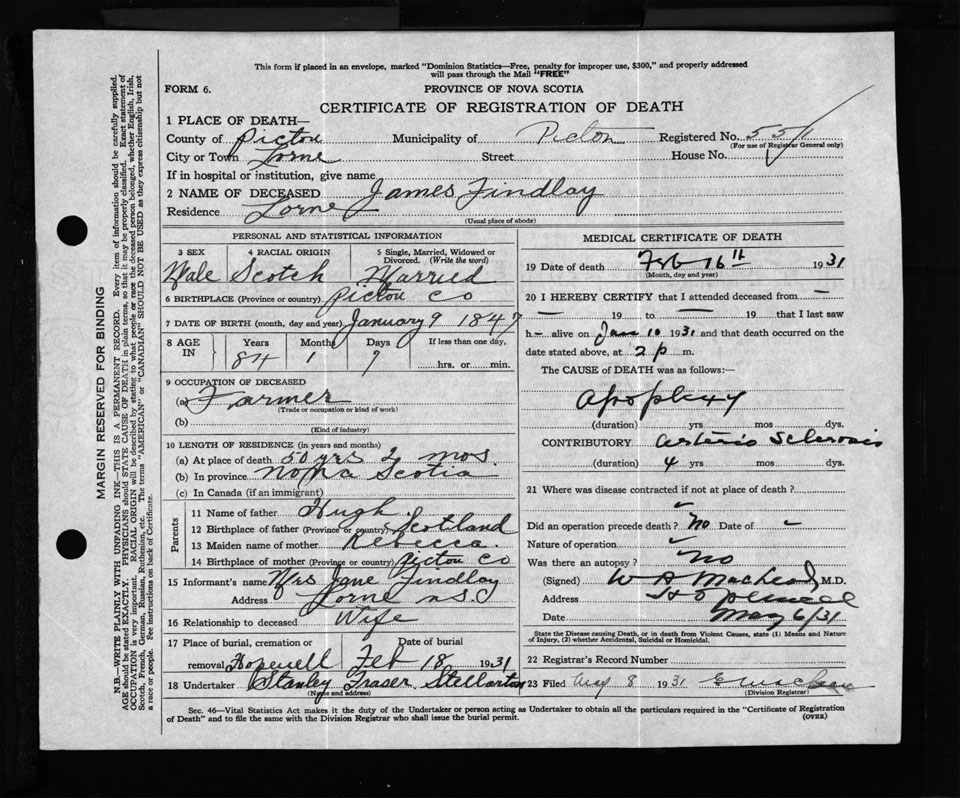 This form if placed in an envelope, marked "Dominion Statistics—Free, penalty for improper use, $300," and properly addressed
will pass through the Mail "FREE"
FORM 6.
PROVINCE OF NOVA SCOTIA
CERTIFICATE OF REGISTRATION OF DEATH
1 PLACE OF DEATH—
County of Pictou Municipality of Pictou Registered No. 551
(For use of Registrar General only)
City or Town Lorne Street House No.
If in hospital or institution, give name
2 NAME OF DECEASED James Findlay
Residence Lorne
(Usual place of abode)
PERSONAL AND STATISTICAL INFORMATION
3 SEX 4 RACIAL ORIGIN 5 Single, Married, Widowed or Divorced. (Write the word)
Male Scotch Married
6 BIRTHPLACE (Province or country) Pictou Co
7 DATE OF BIRTH (month, day and year) January 9 1847
8 AGE IN Years Months Days If less than one day,
84 1 7 hrs. or min.
9 OCCUPATION OF DECEASED
(a) Farmer
(Trade or occupation or kind of work)
(b)
(Kind of industry)
10 LENGTH OF RESIDENCE (in years and months)
(a) At place of death 50 yrs 2 mos.
(b) In province Nova Scotia
(c) In Canada (if an immigrant)
Parents
11 Name of father Hugh
12 Birthplace of father (Province or country) Scotland
13 Maiden name of mother Rebecca
14 Birthplace of mother (Province or country) Pictou Co
15 Informant's name Mrs Jane Findlay
Address Lorne N.S.
16 Relationship to deceased Wife
17 Place of burial, cremation or Date of burial
removal Hopewell Feb 18 1931
18 Undertaker Stanley Fraser Stellarton
(Name and address)
MEDICAL CERTIFICATE OF DEATH
19 Date of death Feb 16th 1931
(Month, day and year)
20 I HEREBY CERTIFY that I attended deceased from —
— 19 to — 19 that I last saw
h— alive on Jan 10 1931 and that death occurred on
date stated above, at 2 p m.
The CAUSE of DEATH was as follows:—
Apoplexy
(duration) yrs mos dys.
CONTRIBUTORY Arterio Sclerosis
(duration) 4 yrs mos dys.
21 Where was disease contracted if not at place of death?
Did an operation precede death? No Date of –
Nature of operation
Was there an autopsy? No
(Signed) M.D.
Address Hopewell
Date May 6/31
State the Disease causing Death, or in death from Violent Causes, state (1) Means and Nature
of Injury, (2) whether Accidental, Suicidal or Homicidal.
22 Registrar's Record Number
23 Filed 8 1931
(Division Registrar)
Sec. 46—Vital Statistics Act makes it the duty of the Undertaker or person acting as Undertaker to obtain all the particulars required in the "Certificate of Registration
of Death" and to file the same with the Division Registrar who shall issue the burial permit.
(OVER)
MARGIN RESERVED FOR BINDING
N.B—WRITE PLAINLY WITH UNFADING INK—THIS IS A PERMANENT RECORD. Every item of information should be carefully supplied.
AGE should be stated EXACTLY. PHYSICIANS should STATE CAUSE OF DEATH in plain terms, so that it may be properly classified. Exact statement of
OCCUPATION is very important. RACIAL ORIGIN will be described by stating to what people or race the deceased person belonged, whether English, Irish,
Scotch, French, German, Russian, Ruthenian, etc. The terms "AMERICAN" or "CANADIAN" SHOULD NOT BE USED as they express citizenship but not
a race or people. See instructions on back of Certificate.